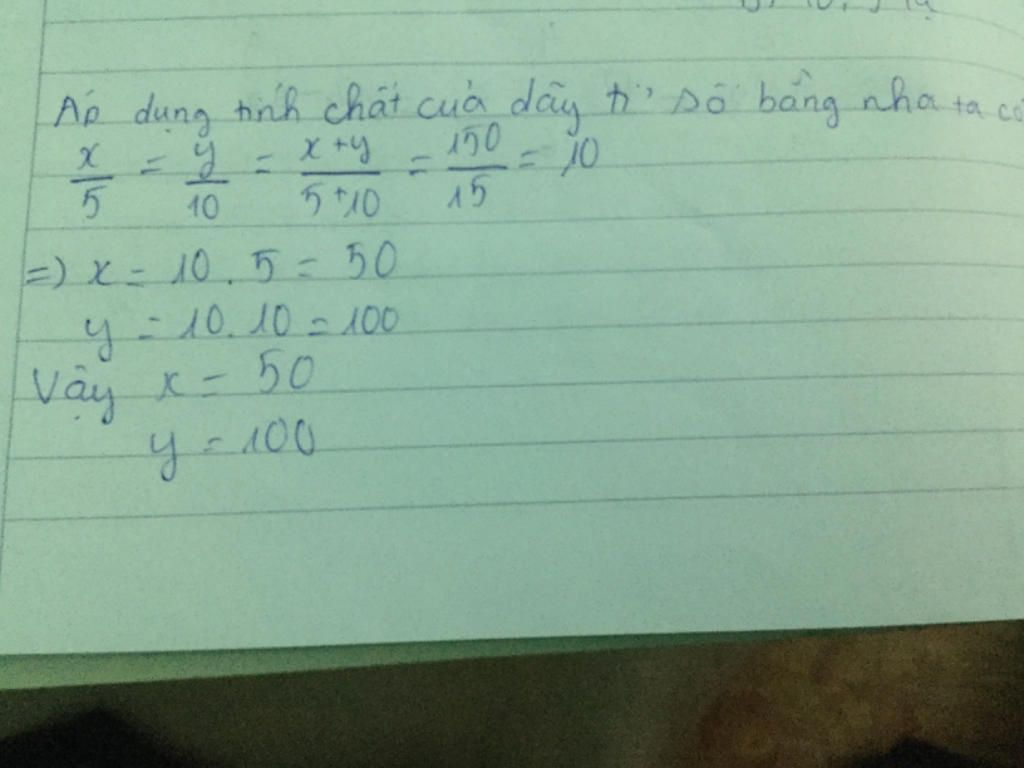 Áp dụng tính chất của dãy tỉ số bằng nha ta có
x/5 = y/10 = x+y/5+10 = 150/15 = 10
=) x = 10 . 5 = 50
y = 10 . 10 = 100
Vậy x = 50
y = 100